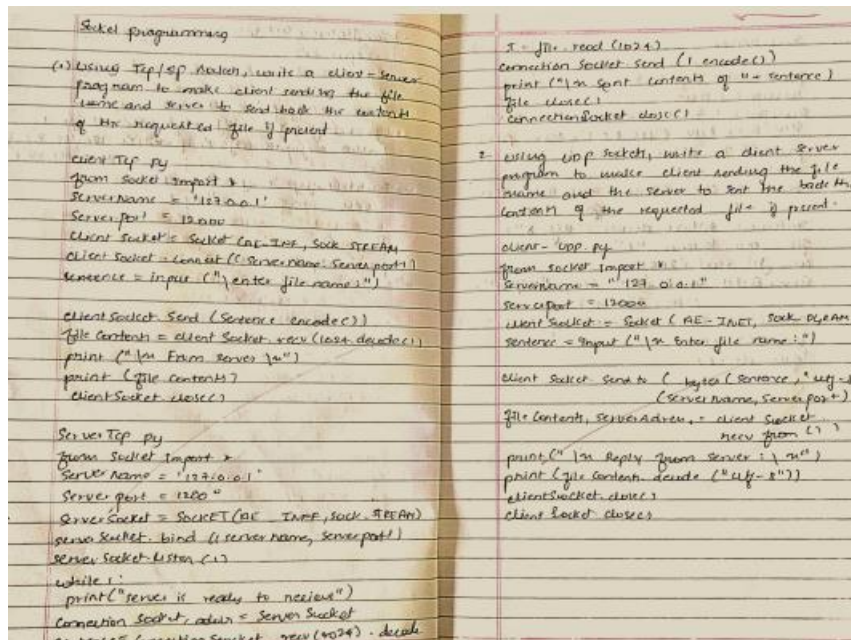 Socket programming
(1) Using Tcp/Ip sockets, write a client-server
program to make client sending the file
name and server to send back the contents
of the requested file if present
client Tcp py
from socket import *
serverName = '127.0.0.1'
Server port = 12000
client socket = socket (AF-INF, SOCK STREAM
client socket . connect (( server name, server port))
sentence = input ("\ enter file name : ")
client socket. send (Sentence encode())
file contents = client socket. recv (1024 decode()
print ("\n From server \n")
print (file contents)
client socket. close()
Server Tcp py
from socket import *
Server Name = '127.0.0.1'
Server port =
Server Socket = SOCKET (AF _ INFF, SOCK. STREAM)
server socket. bind (( server name, server port)
server socket. Listen (1)
while 1 :
print ("server is ready to recieve")
Connection Socket, = Server Socket
Connection Socket, recv (1024) . decode
= file. read (1024)
connection socket send ( encode()
print ("\n Sent contents of "+ sentence)
file close()
connectionSocket close()
2. using UDP sockets, write a client server
program to make client sending the file
name and the server to sent the back the
contents of the requested file if present.
client- UDP. py
from socket import *
servername = "127.0.0.1"
server port = 12000
client socket = Socket ( AF-INET, SOCK_
sentence = input ("\n Enter file name :")
client socket. send to ( bytes (sentence, "utf-8
(server name, server port)
file Contents, = client socket.
recv from ( )
print (" \n Reply from server : \ n")
print (file content. decode ("utf-8"))
client socket. close()
client socket close()